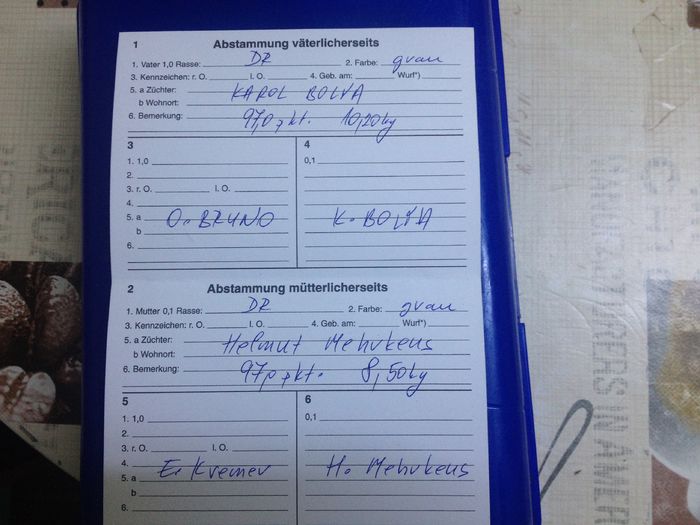 1 Abstammung väterlicherseits
1. Vater 1,0 Rasse: DR 2. Farbe: grau
3. Kennzeichen: r. O. l. O. 4. Geb. am: Wurf*)
5. a Züchter: KAROL BOLYA
b Wohnort:
6. Bemerkung: 97,0 pkt. 10,20 kg
3 4
1. 1,0 0,1
2.
3. r. O. l. O.
4.
5. a O. BRUNO K. BOLYA
b
6.
2 Abstammung mütterlicherseits
1. Mutter 0,1 Rasse: DR 2. Farbe: grau
3. Kennzeichen: r. O. l. O. 4. Geb. am: Wurf*)
5. a Züchter: Helmut Mehrkens
b Wohnort:
6. Bemerkung: 97,0 pkt. 8,50 kg
5 6
1. 1,0 0,1
2.
3. r. O. l. O.
4.
5. a E. Kremer H. Mehrkens
b
6.